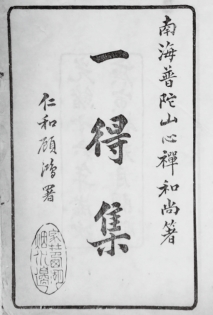 南海普陀山心禪和尚著
一得集
仁和顧鴻署